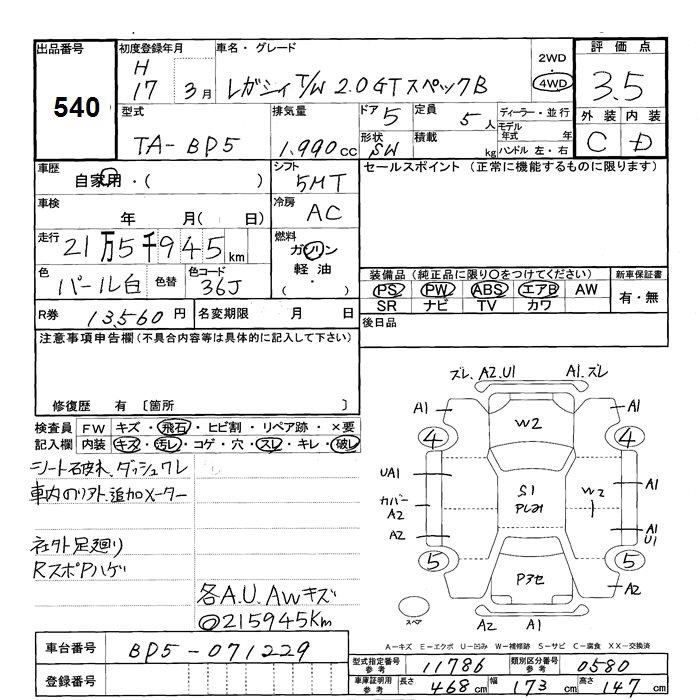 出品番号
540
初度登録年月
H
17 3月
車名・グレード
レガシィ T/W 2.0GTスペックB
2WD
4WD
評価点
3.5
外装 内装
C D
型式
TA-BP5
排気量
1.990cc
ドア 5
定員 5人
形状 SW
積載 kg
ディーラー・並行
モデル年式 年
ハンドル 左・右
車歴
自家用・( )
シフト
5MT
セールスポイント (正常に機能するものに限ります)
車検
年 月( 日)
冷房
AC
走行
21万5千945km
燃料
ガソリン
軽油
・
( )
色
パール白
色替
色コード
36J
装備品 (純正品に限り○をつけてください)
PS PW ABS エアB AW
SR ナビ TV カワ
新車保証書
有・無
R券 13,560円
名変期限 月 日
後日品
注意事項申告欄(不具合内容等は具体的に記入して下さい)
修復歴 有 〔箇所 〕
検査員記入欄
FW キズ・飛石・ヒビ割・リペア跡・×要
内装 キズ・汚レ・コゲ・穴・スレ・キレ・破レ
シート破れ、ダッシュワレ
車内のリアト、追加メーター
社外足廻り
RスポPハゲ
各A.U.AWキズ
◎215945Km
ズレ、A2.U1 A1.ズレ
A1 A1
W2
4 4
UA1 A1
カバーA2
S1
W2
A2
A1
U1
5 5
Pアセ
A2
スペア
A2 A1
A-キズ E-エクボ U-凹み W-補修跡 S-サビ C-腐食 XX-交換済
車台番号 BP5-071229
登録番号
型式指定番号参考 11786
類別区分番号参考 0580
車庫証明用参考 長さ 468cm 幅 173cm 高さ 147cm